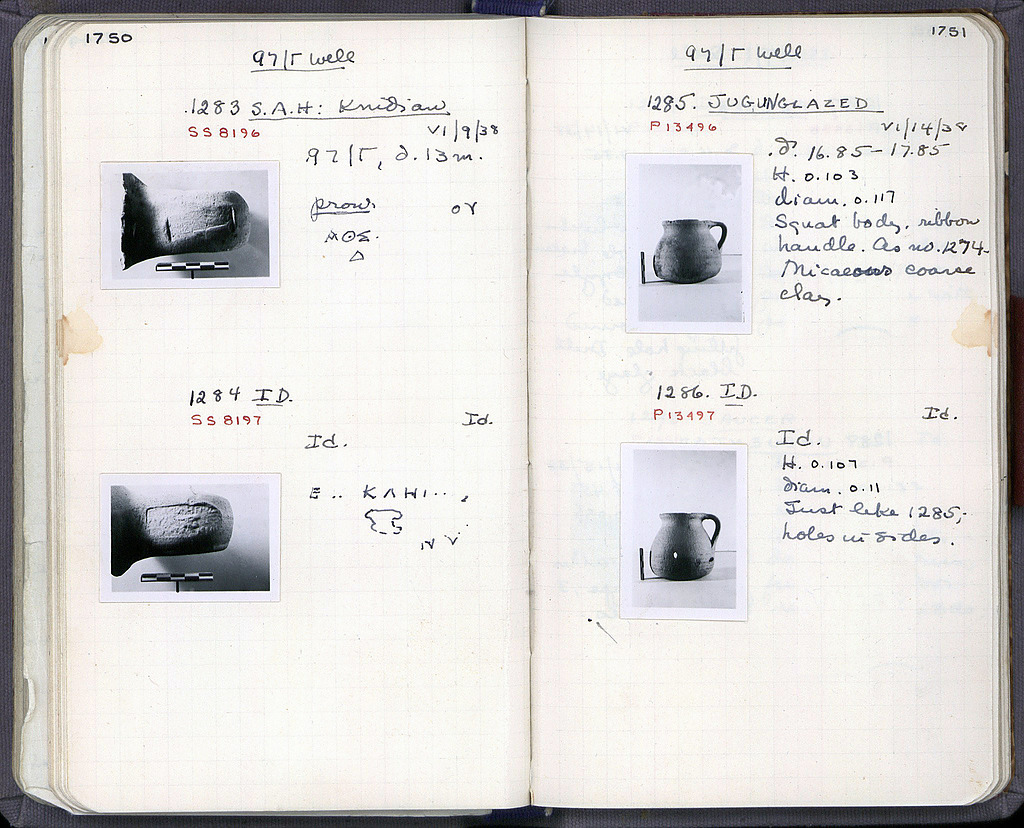 1750
97/Γ well
1283 S.A.H: Knidian
SS 8196
VI/9/38
97/Γ, d. 13 m.
prow.
ΟΥ
ΑΘΣ.
Δ
1284 ID.
SS 8197
Id.
Id.
Ε .. ΚΛΗΙ ...
Ν Υ
1751
97/Γ well
1285. JUG, UNGLAZED
P 13496
VI/14/38
d. 16.85–17.85
H. 0.103
diam. 0.117
Squat body, ribbon
handle. As no. 1274.
Micaceous coarse
clay.
1286. ID.
P 13497
Id.
Id.
H. 0.107
diam. 0.11
Just like 1285;
holes in sides.